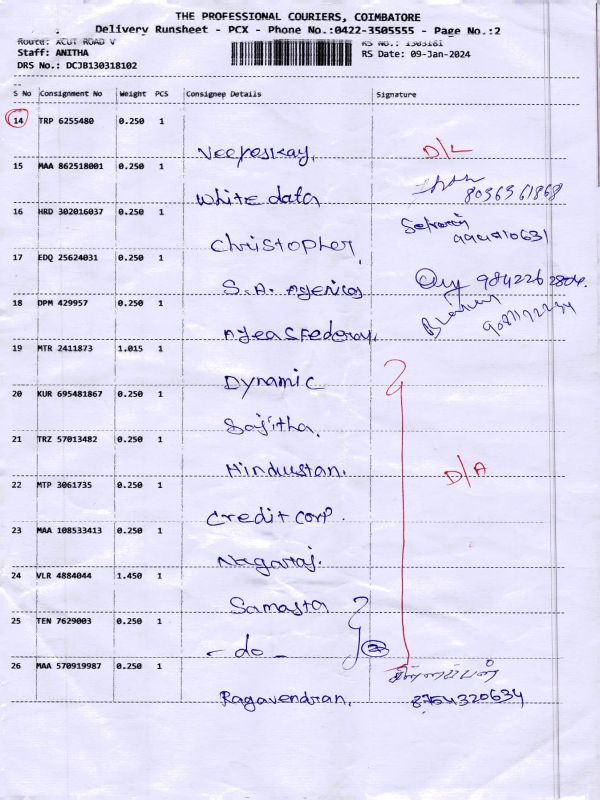 THE PROFESSIONAL COURIERS, COIMBATORE
Delivery Runsheet - PCX - Phone No.:0422-3505555 - Page No.:2
Route: ACUT ROAD V RS No.: 1303181
Staff: ANITHA RS Date: 09-Jan-2024
DRS No.: DCJB130318102
S No Consignment No Weight PCS Consignee Details Signature
14 TRP 6255480 0.250 1
D/L
15 MAA 862518001 0.250 1
White data 8036361868
16 HRD 302016037 0.250 1
Christopher,
17 EDQ 25624031 0.250 1
S.A. Agencies 9842262804.
18 DPM 429957 0.250 1
19 MTR 2411873 1.015 1
Dynamic
20 KUR 695481867 0.250 1
Sajitha.
21 TRZ 57013482 0.250 1
Hindustan. D/A
22 MTP 3061735 0.250 1
Credit Corp.
23 MAA 108533413 0.250 1
Nagaraj.
24 VLR 4884044 1.450 1
Samasta
25 TEN 7629003 0.250 1
- do - 2
26 MAA 570919987 0.250 1
Ragavendran. 8754320634